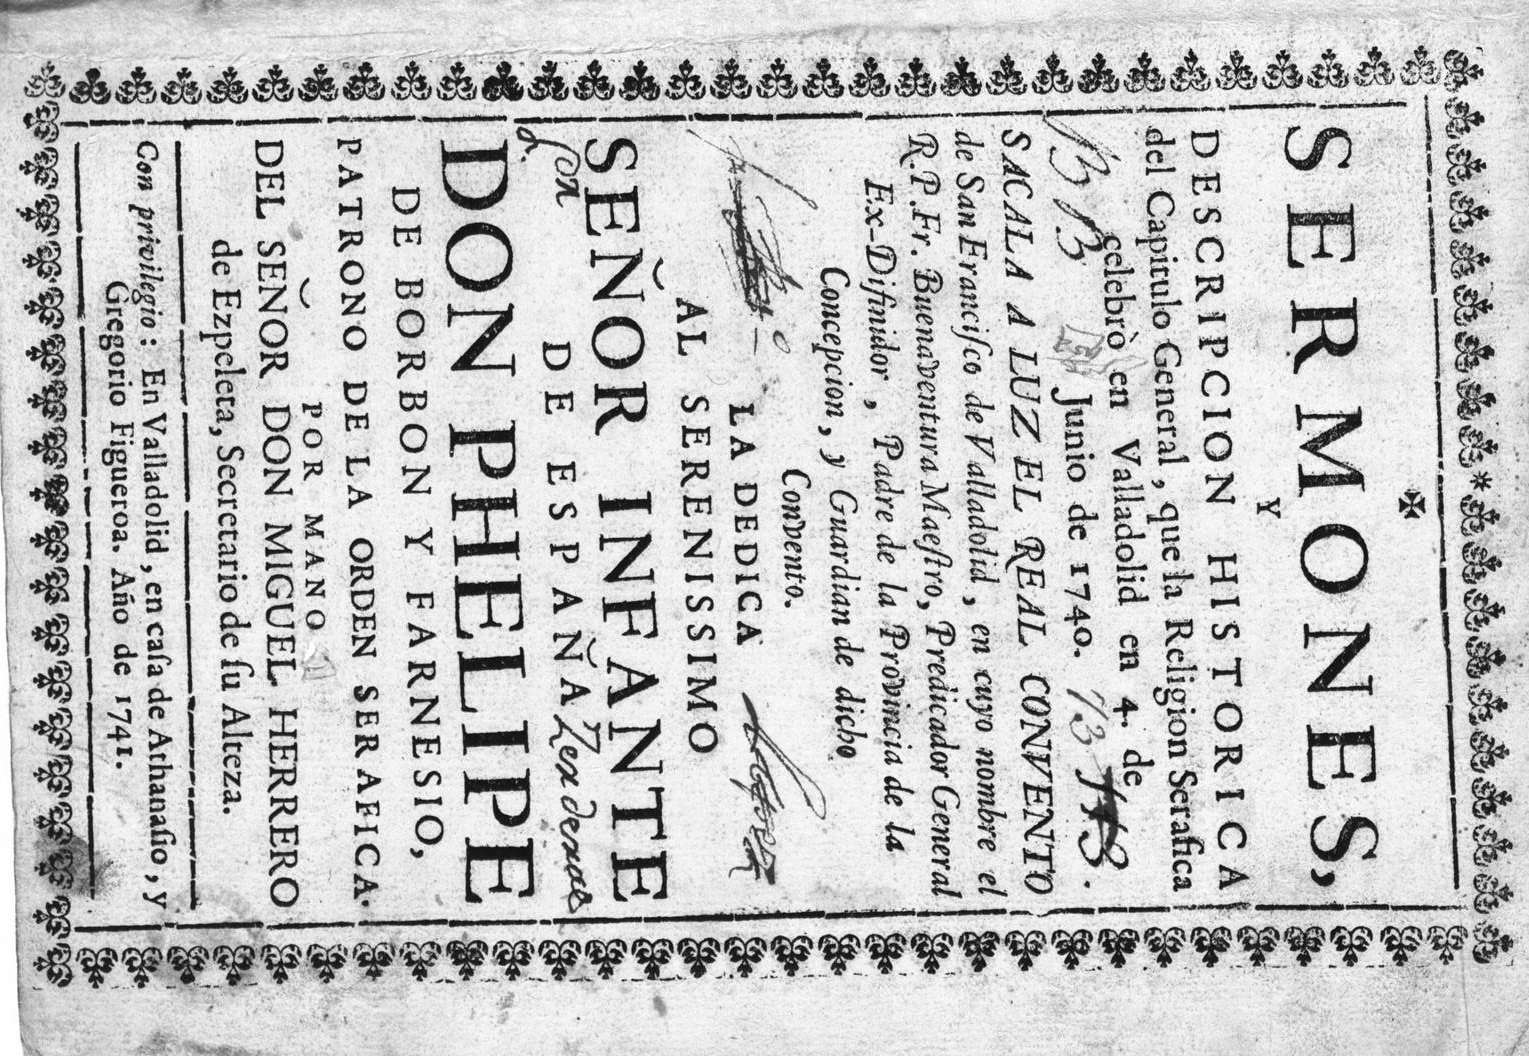 ✠
SERMONES,
Y
DESCRIPCION HISTORICA
del Capitulo General, que la Religion Serafica
celebrò en Valladolid en 4. de
Junio de 1740.
SACALA A LUZ EL REAL CONVENTO
de San Franciſco de Valladolid, en cuyo nombre el
R.P.Fr. Buenaventura Maeſtro, Predicador General
Ex-Difinidor, Padre de la Provincia de la
Concepcion, y Guardian de dicho
Convento.
LA DEDICA
AL SERENISSIMO
SEÑOR INFANTE
DE ESPAÑA
DON PHELIPE
DE BORBON Y FARNESIO,
PATRONO DE LA ORDEN SERAFICA.
POR MANO
DEL SEÑOR DON MIGUEL HERRERO
de Ezpeleta, Secretario de ſu Alteza.
Con privilegio: En Valladolid, en caſa de Athanaſio, y
Gregorio Figueroa. Año de 1741.